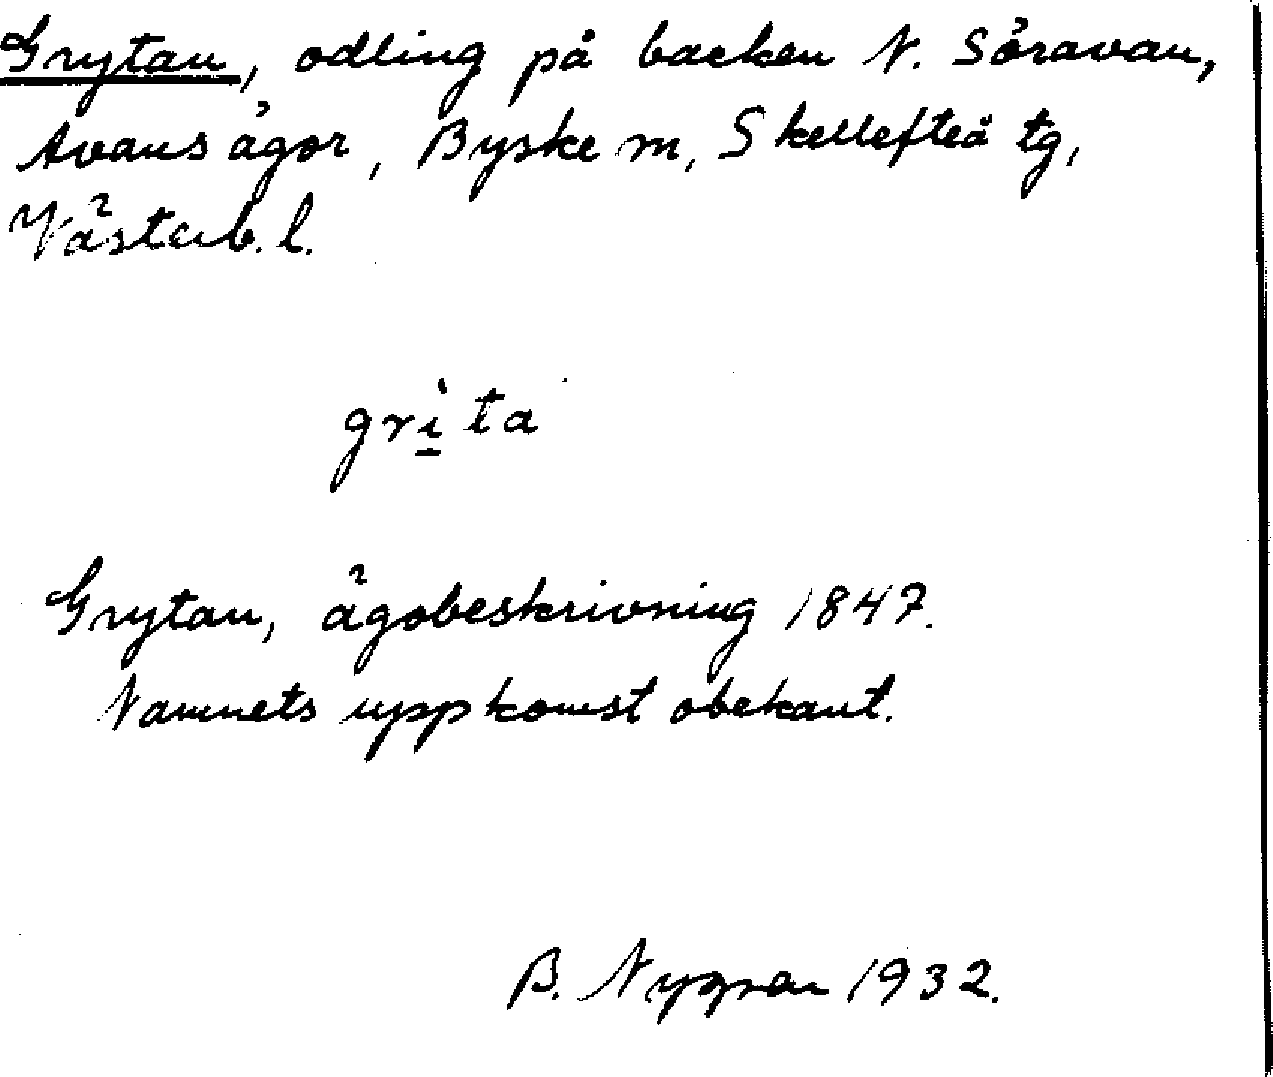 Grytan, odling på backen N. Söravan,
Avans ägor, Byske m, Skellefteå tg,
Västerb. l.
grìta
Grytan, ägobeskrivning 1847.
Namnets uppkomst obekant.
B. Nygren 1932.